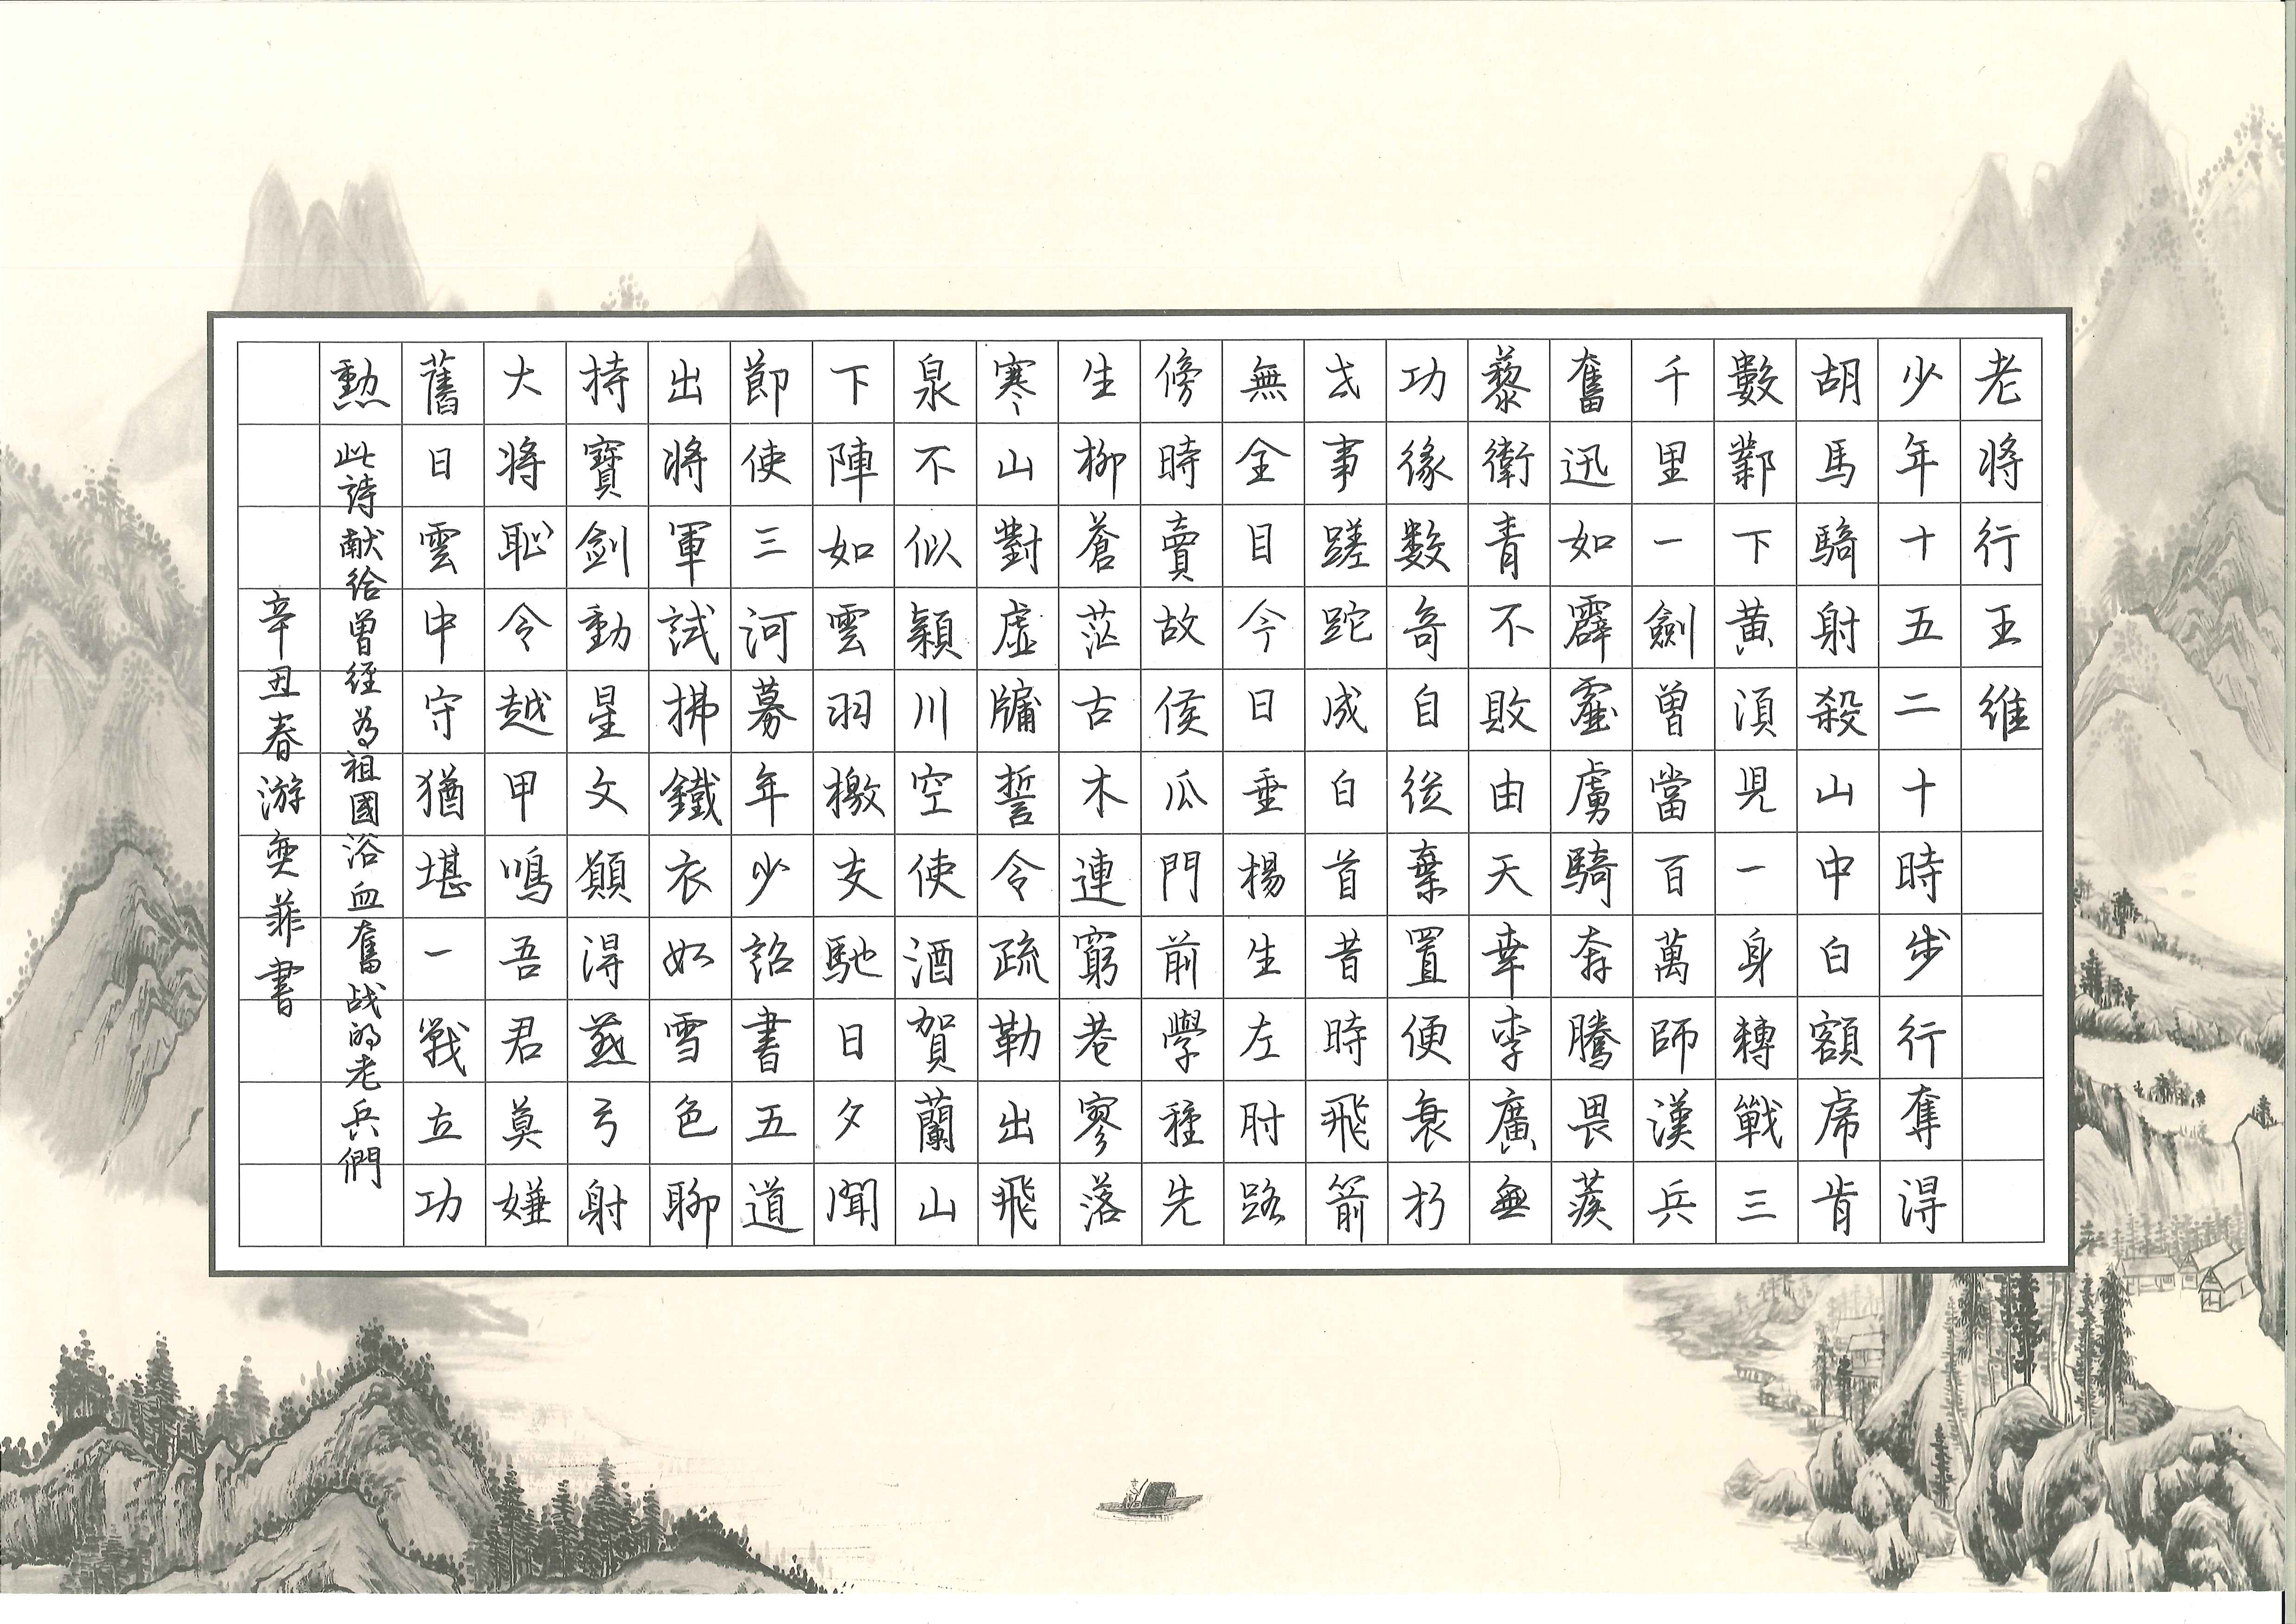 老將行王維
少年十五二十時步行奪得
胡馬騎射殺山中白額虎肯
數鄴下黃須兒一身轉戰三
千里一劍曾當百萬師漢兵
奮迅如霹靂虜騎奔騰畏蒺
藜衛青不敗由天幸李廣無
功緣數奇自從棄置便衰朽
世事蹉跎成白首昔時飛箭
無全目今日垂楊生左肘路
傍時賣故侯瓜門前學種先
生柳蒼茫古木連窮巷寥落
寒山對虛牖誓令疏勒出飛
泉不似潁川空使酒賀蘭山
下陣如雲羽檄交馳日夕聞
節使三河募年少詔書五道
出將軍試拂鐵衣如雪色聊
持寶劍動星文願得燕弓射
大將恥令越甲鳴吾君莫嫌
舊日雲中守猶堪一戰立功
勳此詩献給曾经為祖國浴血奮战的老兵們
辛丑春游奕菲書